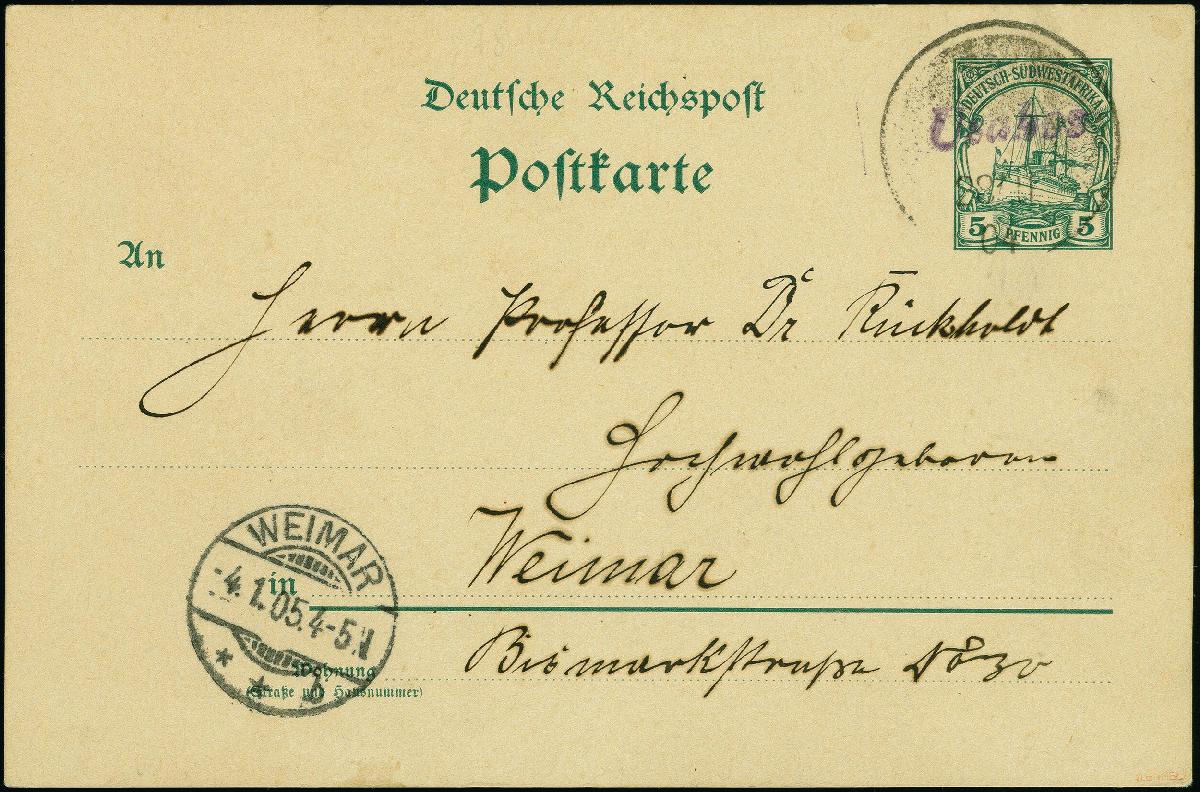 Deutsche Reichspost
Postkarte
DEUTSCH-SÜDWESTAFRIKA
Uhabis
5 PFENNIG 5
04
An
Herrn Professor Dr Rückholdt
Hochwohlgeboren
in Weimar
WEIMAR
-4.1.05.4-5N
* * b
Wohnung
(Straße und Hausnummer)
Bismarkstraße No